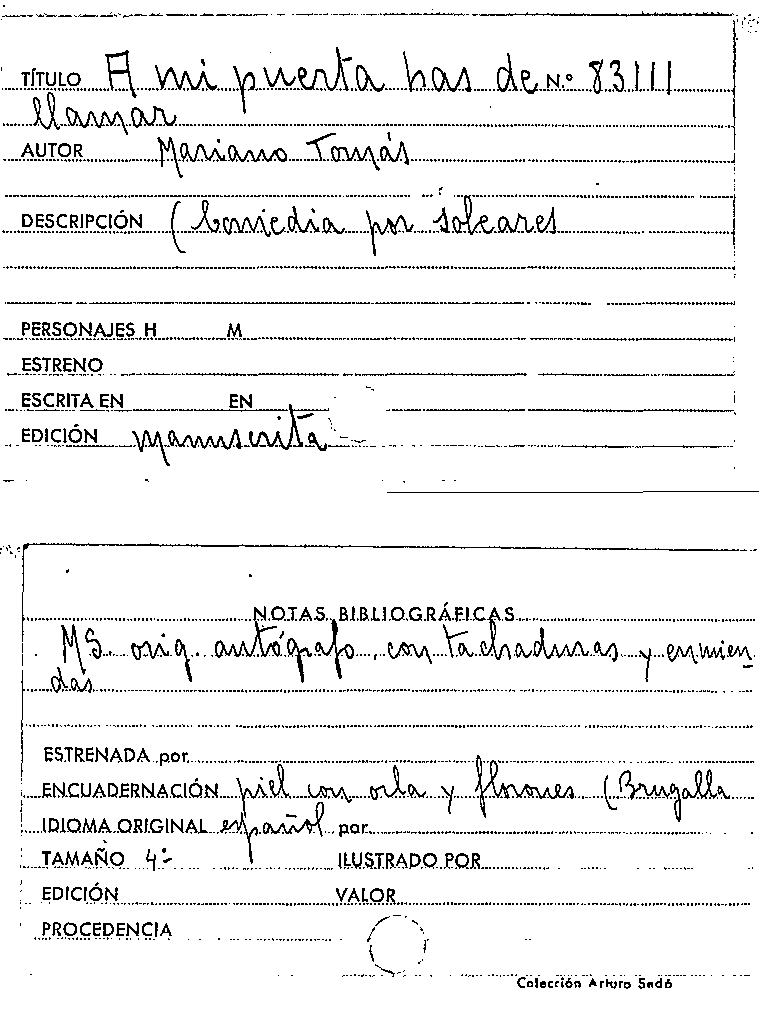 TÍTULO A mi puerta has de N.º 83111
llamar
AUTOR Mariano Tomás
DESCRIPCIÓN (Comedia por soleares
PERSONAJES H M
ESTRENO
ESCRITA EN EN
EDICIÓN manuscrita
NOTAS BIBLIOGRÁFICAS
MS. orig. autógrafo, con tachaduras y enmien
das
ESTRENADA por
ENCUADERNACIÓN piel con orla y florones (Brugalla
IDIOMA ORIGINAL español por
TAMAÑO 4º ILUSTRADO POR
EDICIÓN VALOR
PROCEDENCIA
Colección Arturo Sedó